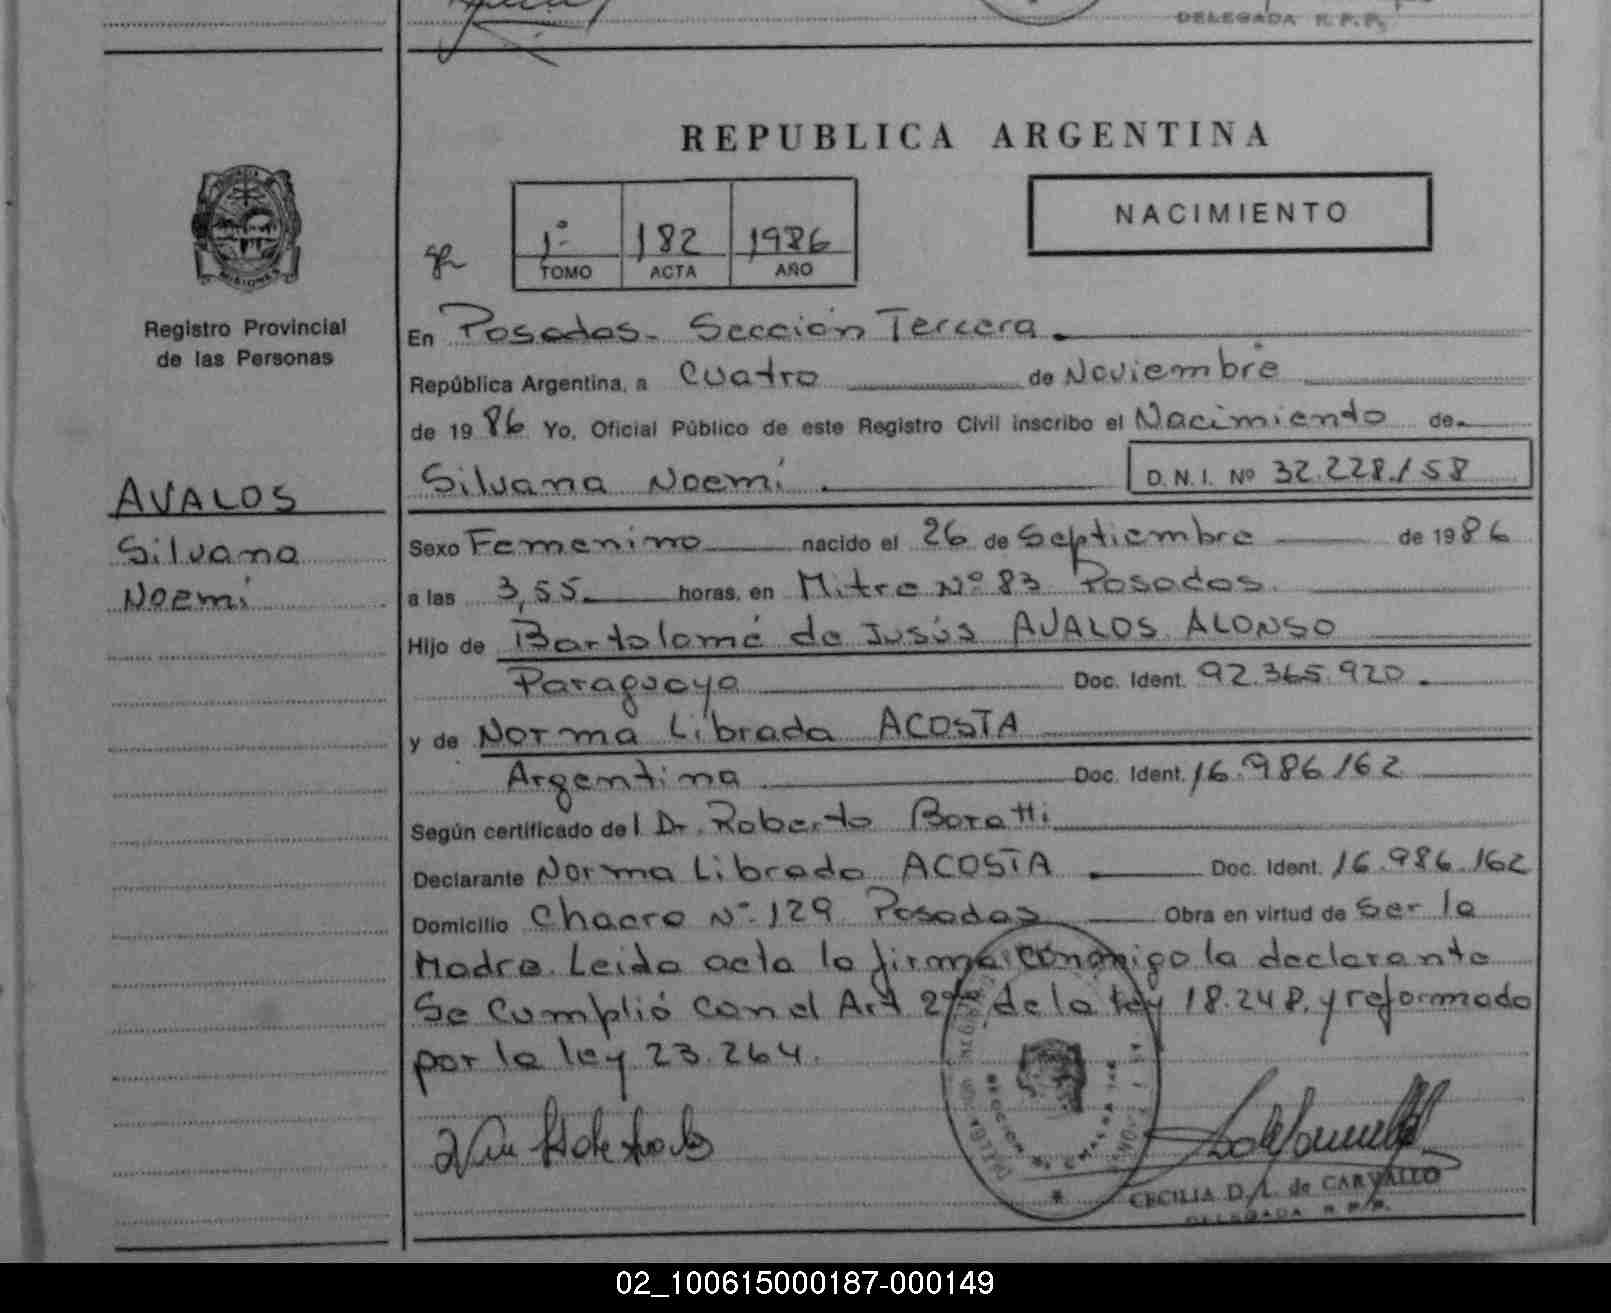 DELEGADA R.P.P.
REPUBLICA ARGENTINA
NACIMIENTO
1º 182 1986
TOMO ACTA AÑO
Registro Provincial
de las Personas
En Posadas - Sección Tercera
República Argentina, a Cuatro de Noviembre
de 1986 Yo, Oficial Público de este Registro Civil inscribo el Nacimiento de
AVALOS
Silvana
Noemí
Silvana Noemí D.N.I. Nº 32.228.158
Sexo Femenino nacido el 26 de Septiembre de 1986
a las 3,55 horas, en Mitre Nº 83 Posadas.
Hijo de Bartolomé de Jusús AVALOS ALONSO
Paraguaya Doc. Ident. 92.365.920.
y de Norma Librada ACOSTA
Argentina Doc. Ident. 16.986.162
Según certificado del Dr. Roberto Boratti
Declarante Norma Librada ACOSTA Doc. Ident. 16.986.162
Domicilio Chacra Nº 129 Posadas Obra en virtud de Ser la
Madre. Leida acta la firma conmigo la declarante
Se Cumplió con el Art 2º de la ley 18.248, y reformado
por la ley 23.264.
CECILIA D. L. de CARVALLO
DELEGADA R.P.P.
02_100615000187-000149